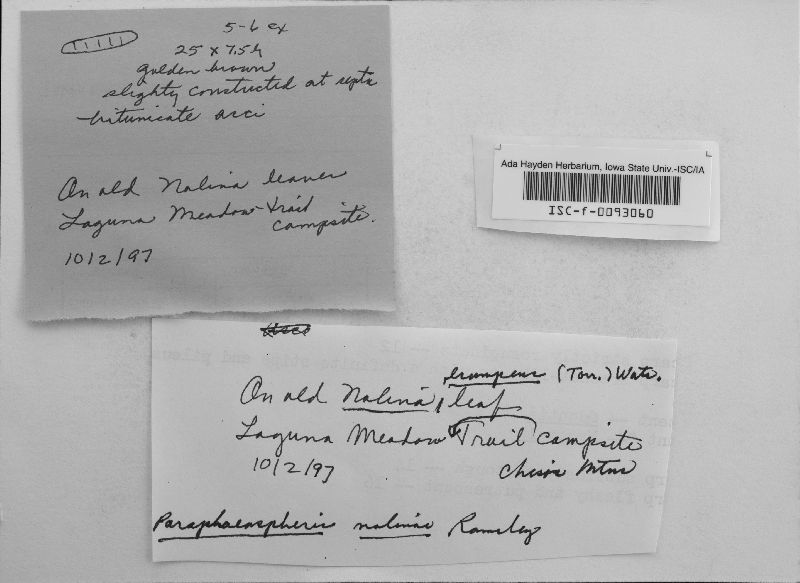 5-6 ex
25 x 7.5 h
golden brown
slighty constructed at septa
bitunicate asci
On old Nolina leaves
Laguna Meadow Trail
campsite.
10/2/97
Ada Hayden Herbarium, Iowa State Univ.-ISC/IA
ISC-f-0093060
erumpens (Torr.) Wats.
On old Nolina, leaf
Laguna Meadow Trail campsite
10/2/97 Chisos Mtns
Paraphaeospheris nolinae Ramaley